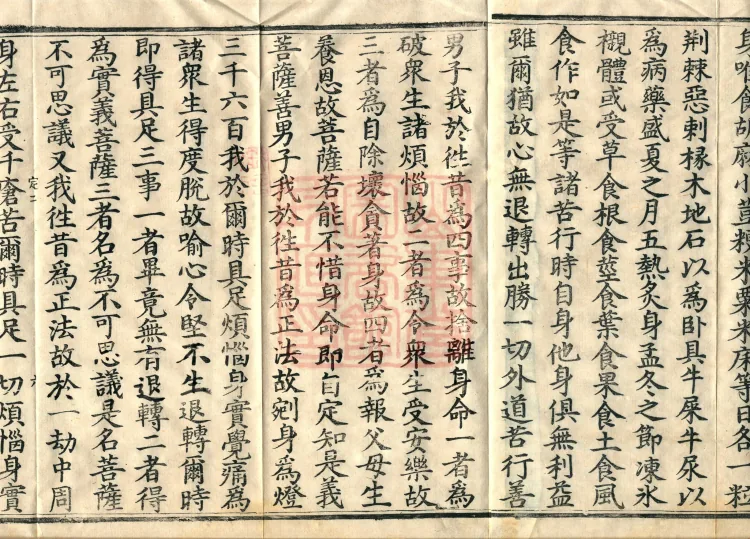 身唯食胡麻小豆粳米粟米床等日各一粒
荆棘惡刺椽木地石以為卧具牛屎牛尿以
為病藥盛夏之月五熱炙身孟冬之節凍氷
襯體或受草食根食莖食葉食果食土食風
食作如是等諸苦行時自身他身俱無利益
雖爾猶故心無退轉出勝一切外道苦行善
男子我於徃昔為四事故捨離身命一者為
破衆生諸煩惱故二者為令衆生受安樂故
三者為自除壞貪著身故四者為報父母生
養恩故菩薩若能不惜身命即自定知是義
菩薩善男子我於徃昔為正法故剜身為燈
三千六百我於爾時具足煩惱身實覺痛為
諸衆生得度脫故喻心令堅不生退轉爾時
即得具足三事一者畢竟無有退轉二者得
為實義菩薩三者名為不可思議是名菩薩
不可思議又我徃昔為正法故於一劫中周
定二 六
身左右受千瘡苦爾時具足一切煩惱身實